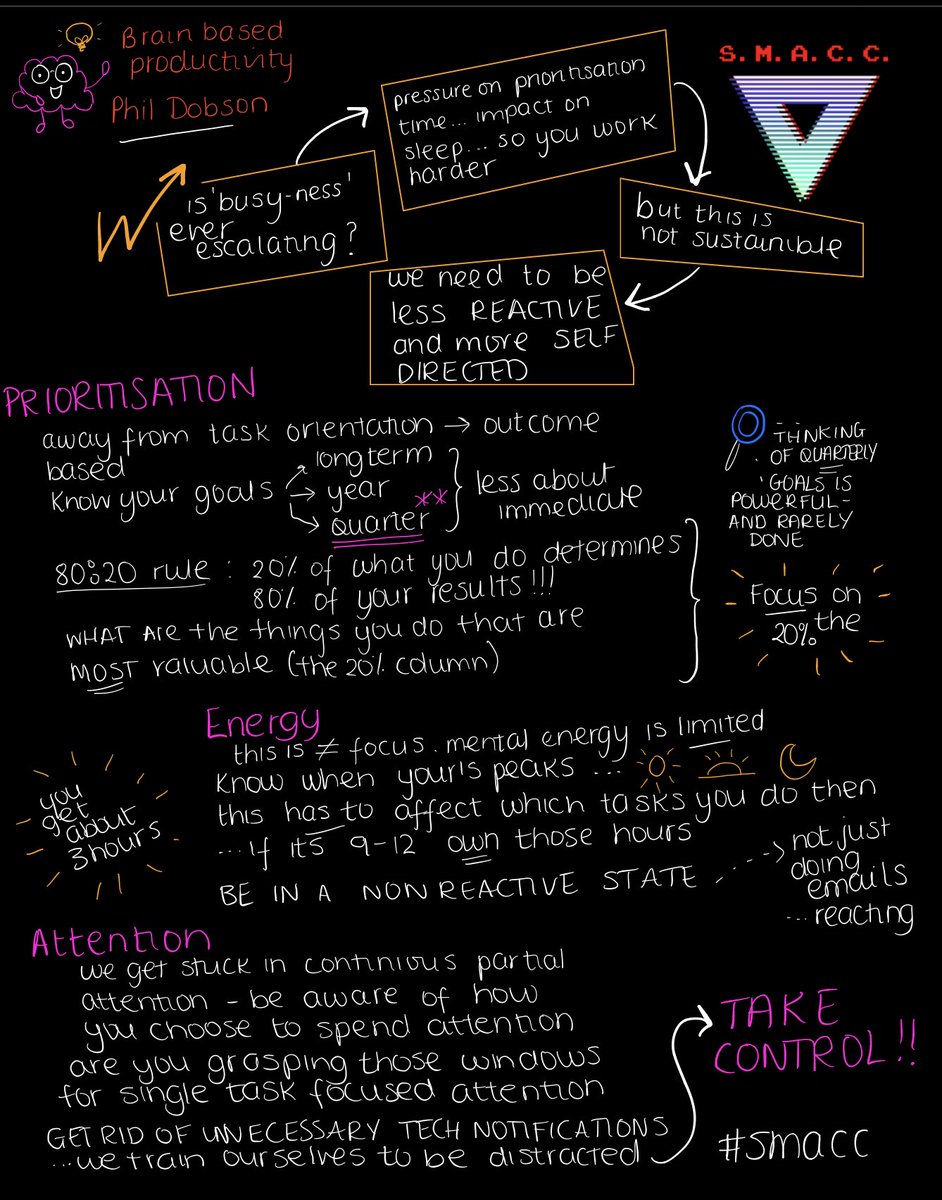 Brain based
productivity
Phil Dobson
S. M. A. C. C.
is 'busy-ness'
ever
escalating?
pressure on prioritisation
time... impact on
sleep... so you work
harder
but this is
not sustainible
we need to be
less REACTIVE
and more SELF
DIRECTED
PRIORITISATION
away from task orientation → outcome
based
Know your goals → long term
→ year
→ quarter **
less about
immediate
THINKING
OF QUARTERLY
GOALS IS
POWERFUL -
AND RARELY
DONE
80:20 rule : 20% of what you do determines
80% of your results !!!
WHAT ARE the things you do that are
MOST valuable (the 20% column)
Focus on
the
20%
Energy
this is ≠ focus. mental energy is limited
Know when your is peaks ...
this has to affect which tasks you do then
... If it's 9-12 own those hours
BE IN A NON REACTIVE STATE
not just
doing
emails
... reacting
you
get
about
3 hours
Attention
we get stuck in continious partial
attention - be aware of how
you choose to spend attention
are you grasping those windows
for single task focused attention
GET RID OF UNNECESSARY TECH NOTIFICATIONS
... we train ourselves to be distracted
TAKE
CONTROL!!
#smacc